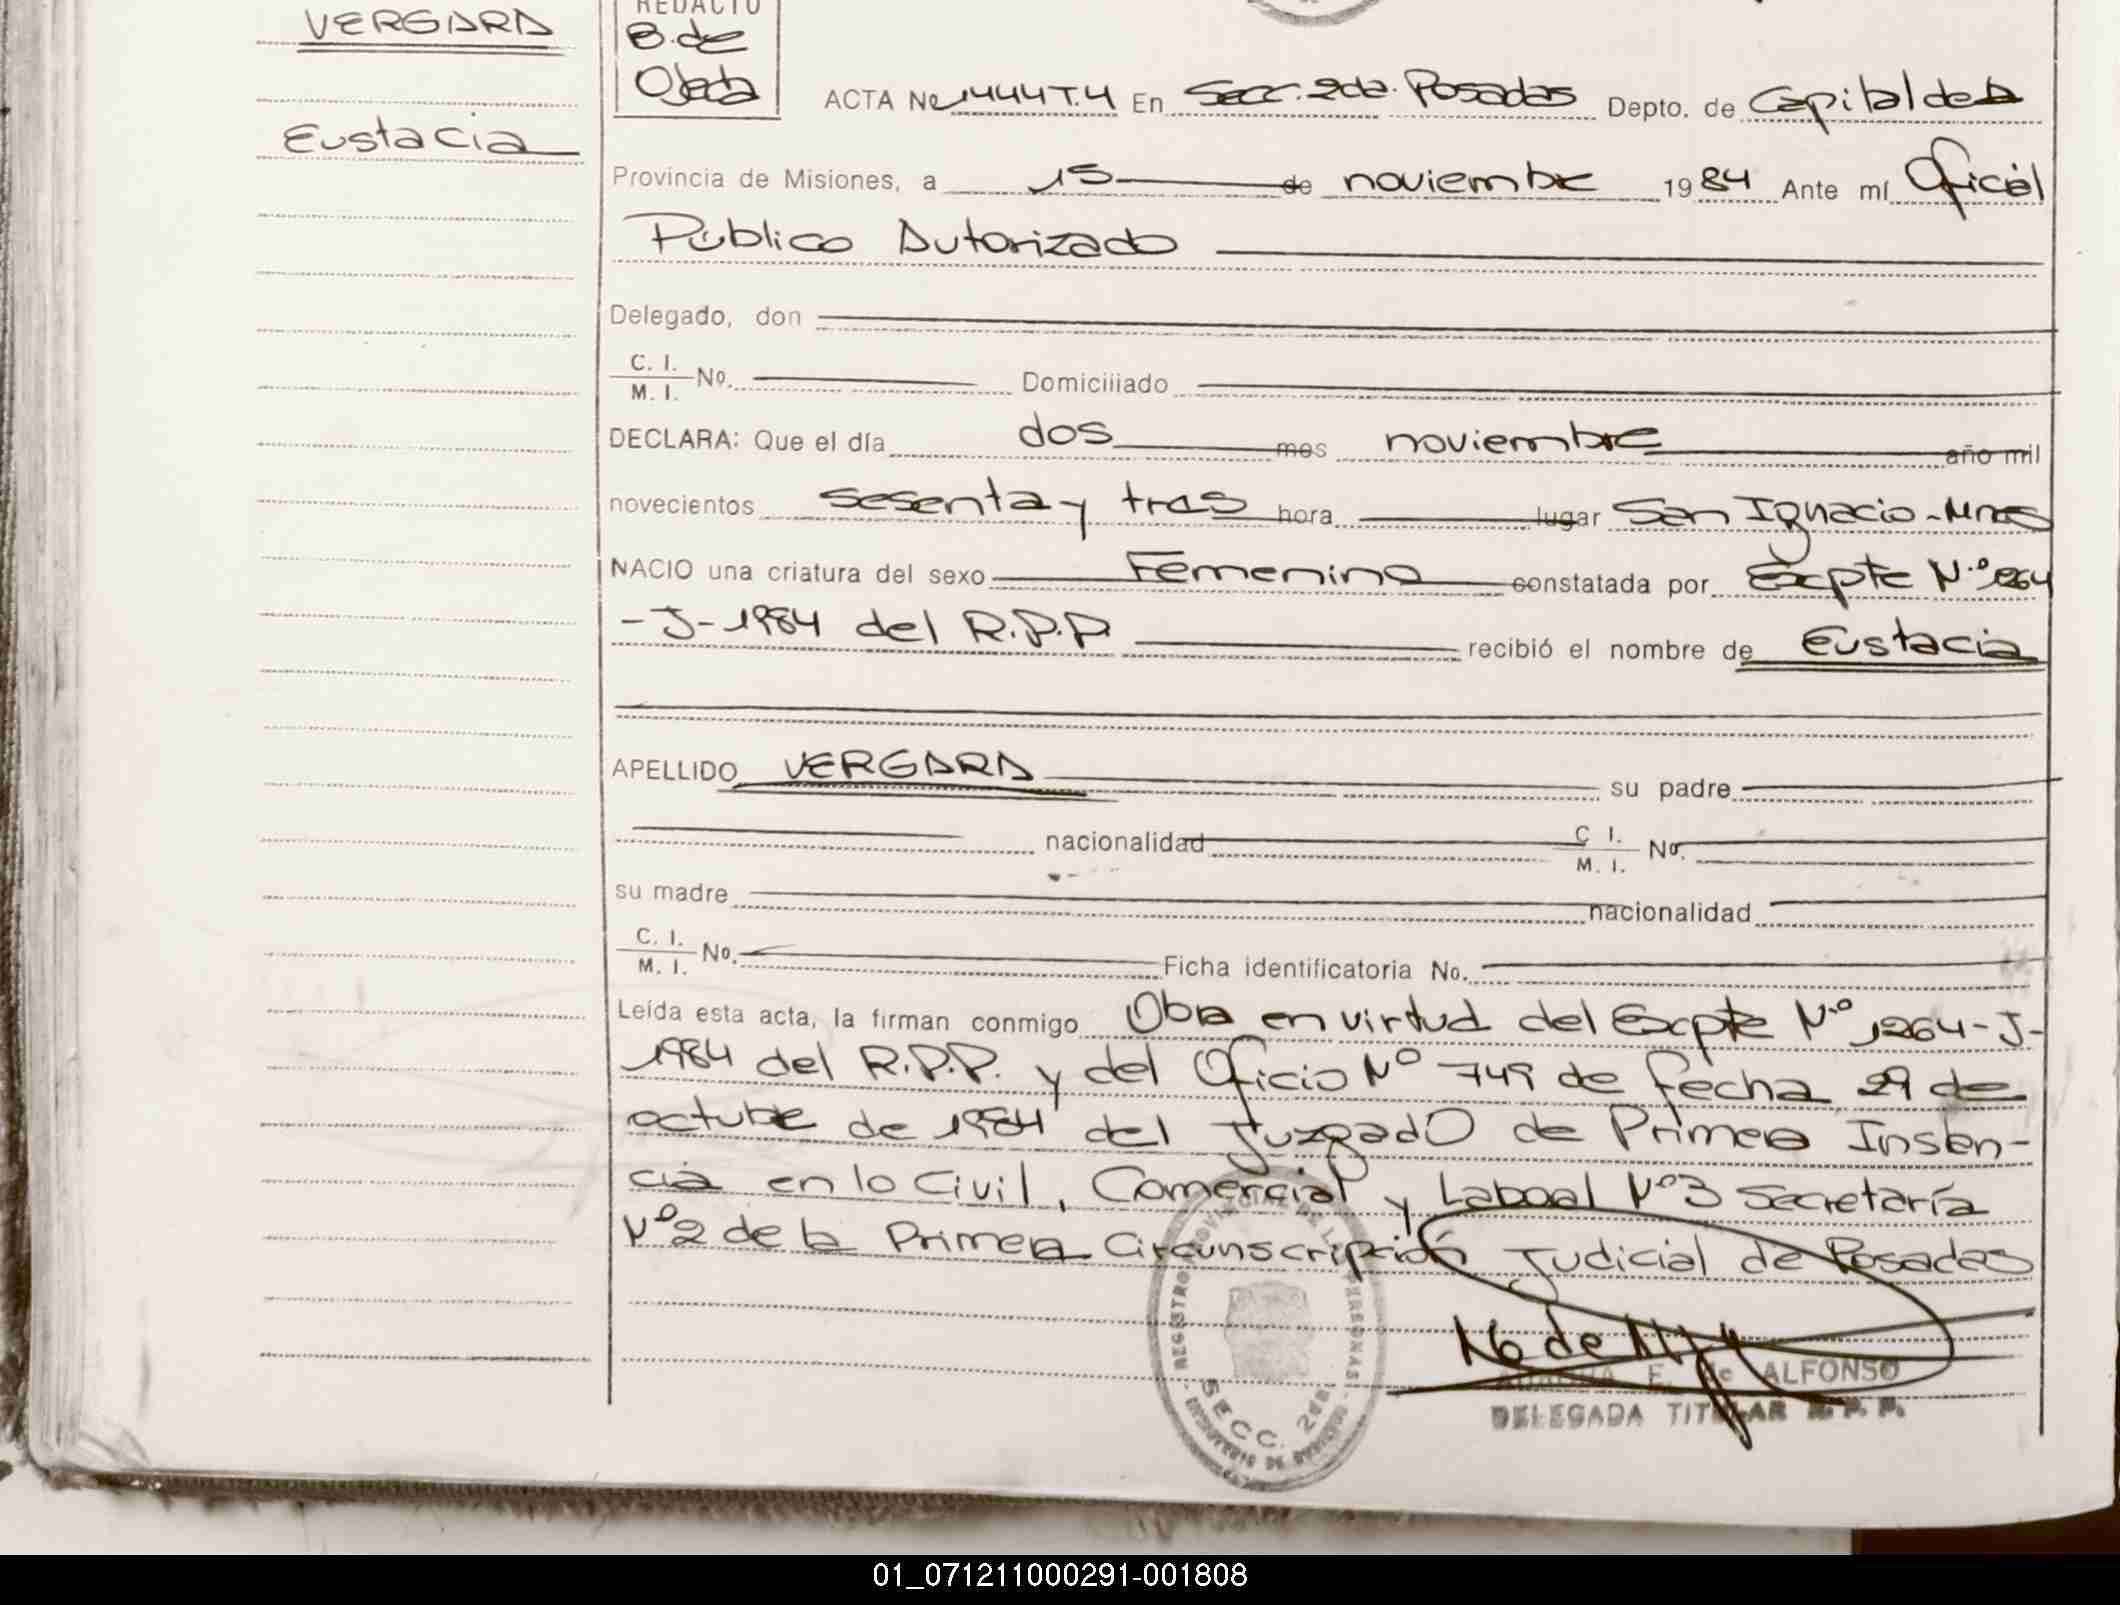 VERGARA
Eustacia
REDACTO
B. de
Ojeda
ACTA No 1444T.4 En Secc. 2da. Posadas Depto. de Capital de la
Provincia de Misiones, a 15 de noviembre 1984 Ante mí Oficial
Público Autorizado
Delegado, don
C. I.
M. I. No. Domiciliado
DECLARA: Que el día dos mes noviembre año mil
novecientos sesenta y tres hora lugar San Ignacio-Mnes
NACIO una criatura del sexo Femenino constatada por Expte Nº 1264
-J-1984 del R.P.P. recibió el nombre de Eustacia
APELLIDO VERGARA su padre
nacionalidad C I. M. I. No.
su madre nacionalidad
C. I.
M. I. No. Ficha identificatoria No.
Leída esta acta, la firman conmigo Obra en virtud del Expte Nº 1264-J-
1984 del R.P.P. y del Oficio Nº 749 de fecha 29 de
octubre de 1984 del Juzgado de Primera Instan-
cia en lo Civil, Comercial y Laboral Nº3 Secretaría
Nº2 de la Primera Circunscripción Judicial de Posadas
REGISTRO PROVINCIAL DE LAS PERSONAS
SECC. 2da
E. de ALFONSO
DELEGADA TITULAR R. P. P.
01_071211000291-001808